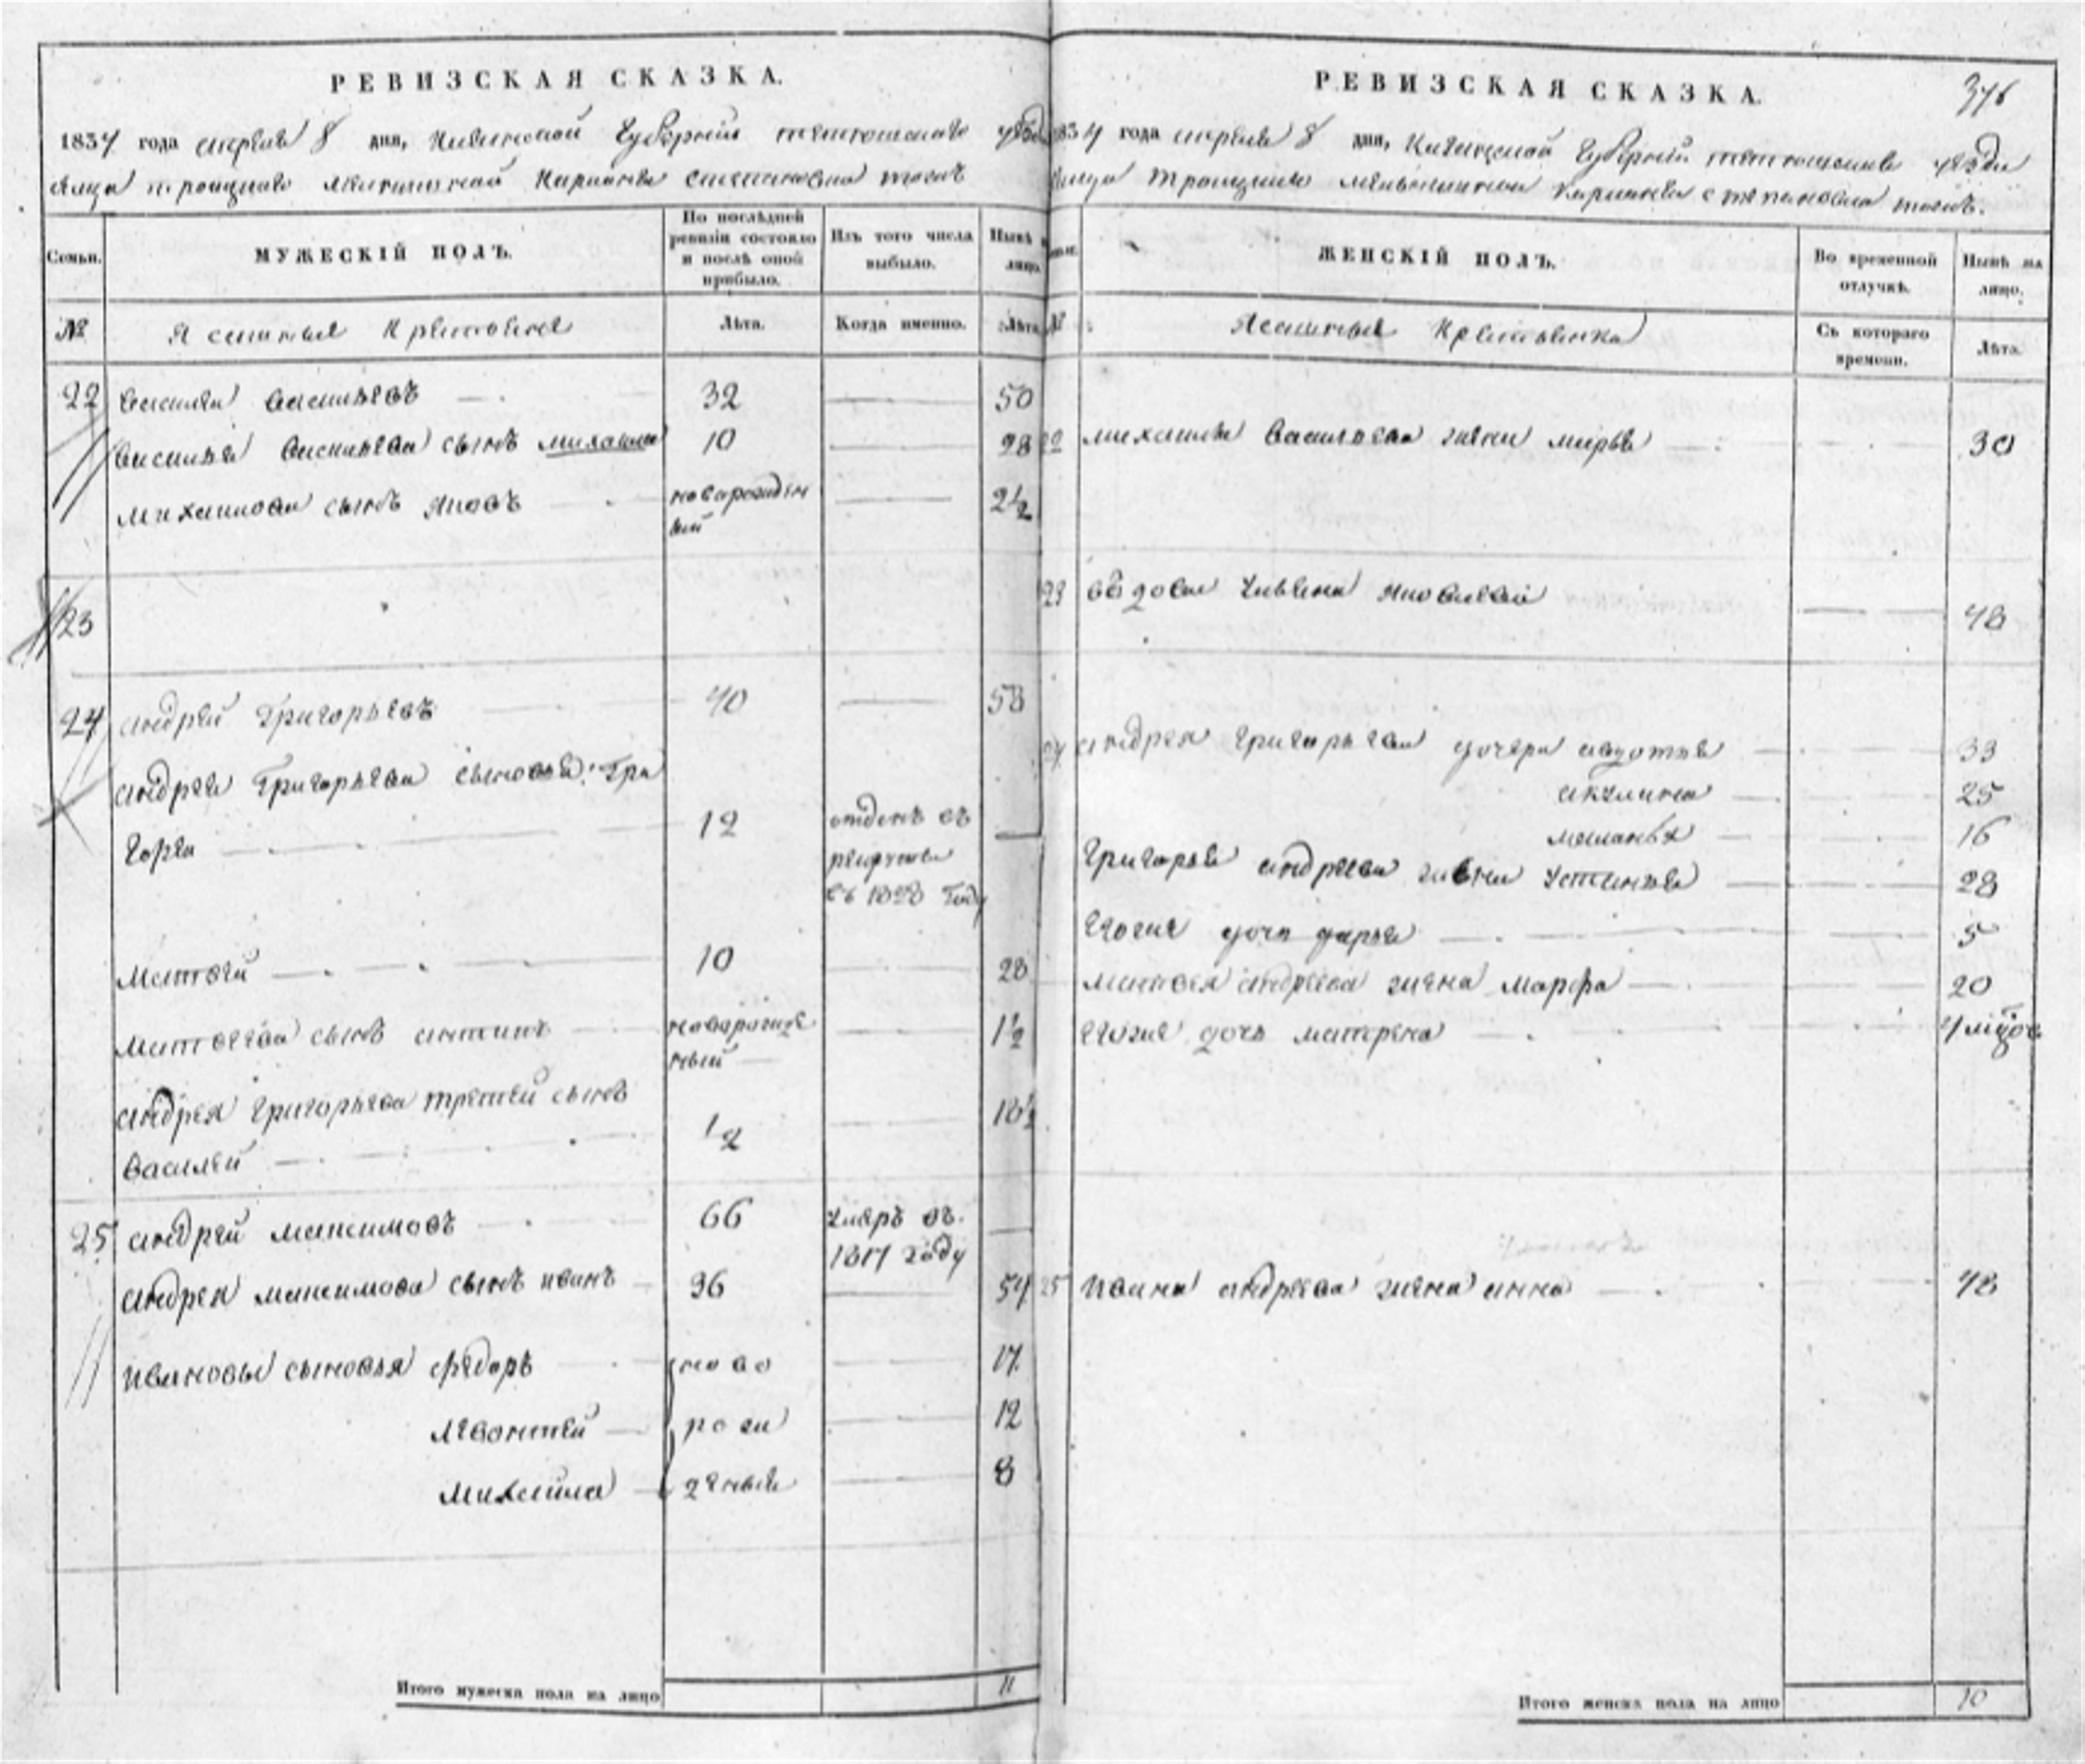 РЕВИЗСКАЯ СКАЗКА.
1834 года апреля 8 дня, Казанской Губернии тетюшскаго уезда
РЕВИЗСКАЯ СКАЗКА.
376
1834 года апреля 8 дня, Казанской Губернии тетюшскаго уезда
Семьи.
МУЖЕСКІЙ ПОЛЪ.
По послѣдней ревизіи состояло и послѣ оной прибыло.
Изъ того числа выбыло.
Нынѣ на лицо.
№
Ясашныя Крестьяне
Лѣта.
Когда именно.
Лѣта.
22 Василей Васильевъ 32 50
Василья Васильева сынъ михаила 10 28
михайлова сынъ яковъ новорожденный 2½
23
24 андрей Григорьевъ 40 58
андрея Григорьева сыновья: Гри
горей 12 отданъ въ рекруты въ 1828 Году
матвей 10 28
матвеева сынъ антипъ новорожденный 1½
андрея Григорьева третей сынъ
Василей ½ 18½
25 андрей максимовъ 66 умеръ въ 1817 году
андрея максимова сынъ иванъ 36 54
ивановы сыновья федоръ ново 17
левонтей рож 12
михайла денныя 8
Итого мужеска пола на лицо 11
ЖЕНСКІЙ ПОЛЪ.
Во временной отлучкѣ.
Нынѣ на лицо.
№
Ясашныя Крестьянки
Съ котораго времени.
Лѣта.
22 михайлы Васильева жена марья 30
23 вдова Ульяна яковлева 48
24 андрея григорьева дочери авдотья 33
акулина 25
маланья 16
Григорья андреева жена Устинья 28
Егоже дочь дарья 5
матвея андреева жена марфа 20
Егоже дочь матрена
25 ивана андреева жена анна 48
Итого женска пола на лицо 10